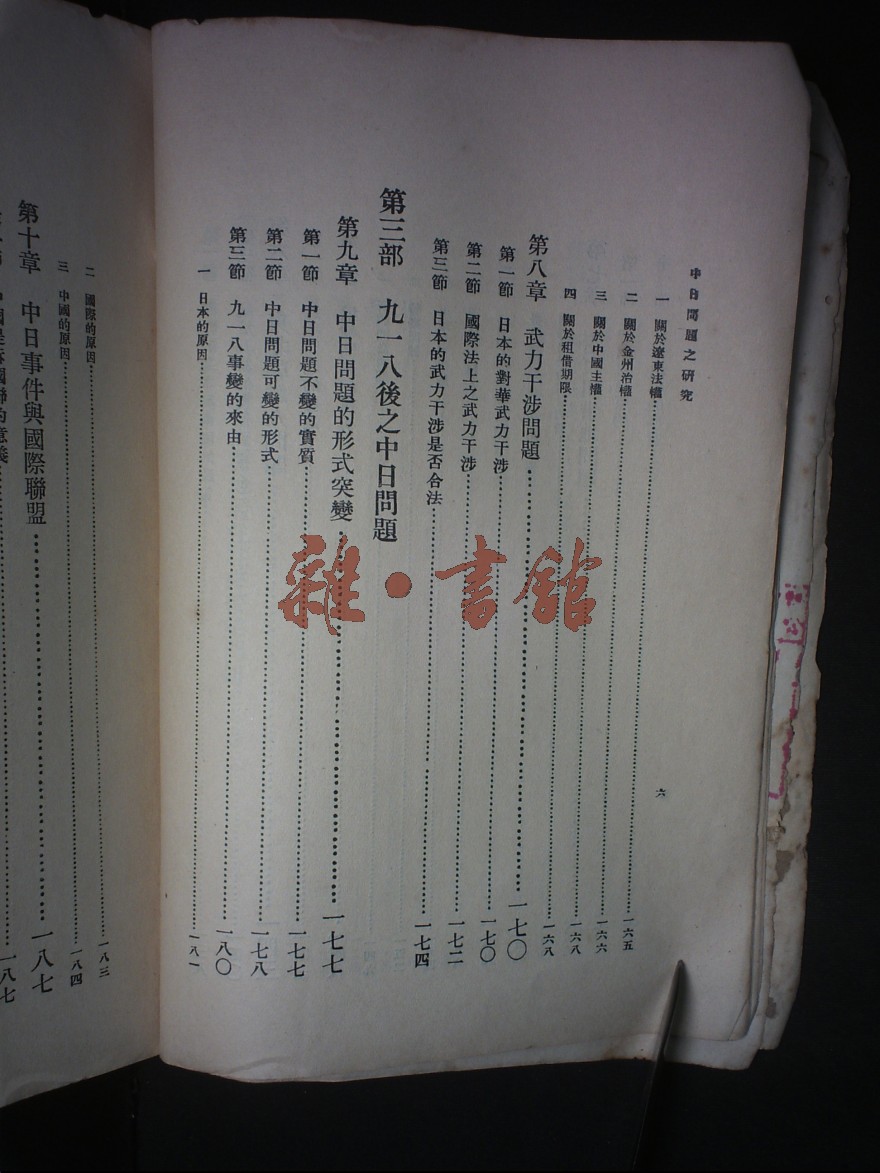 中日問題之研究 六
一 關於遼東法權……一六五
二 關於金州治權……一六六
三 關於中國主權……一六八
四 關於租借期限……一六八
第八章 武力干涉問題……一七〇
第一節 日本的對華武力干涉……一七〇
第二節 國際法上之武力干涉……一七二
第三節 日本的武力干涉是否合法……一七四
第三部 九一八後之中日問題
第九章 中日問題的形式突變……一七七
第一節 中日問題不變的實質……一七七
第二節 中日問題可變的形式……一七八
第三節 九一八事變的來由……一八〇
一 日本的原因……一八一
二 國際的原因……一八三
三 中國的原因……一八四
第十章 中日事件與國際聯盟……一八七
國聯的意義……一八七
雜·書館